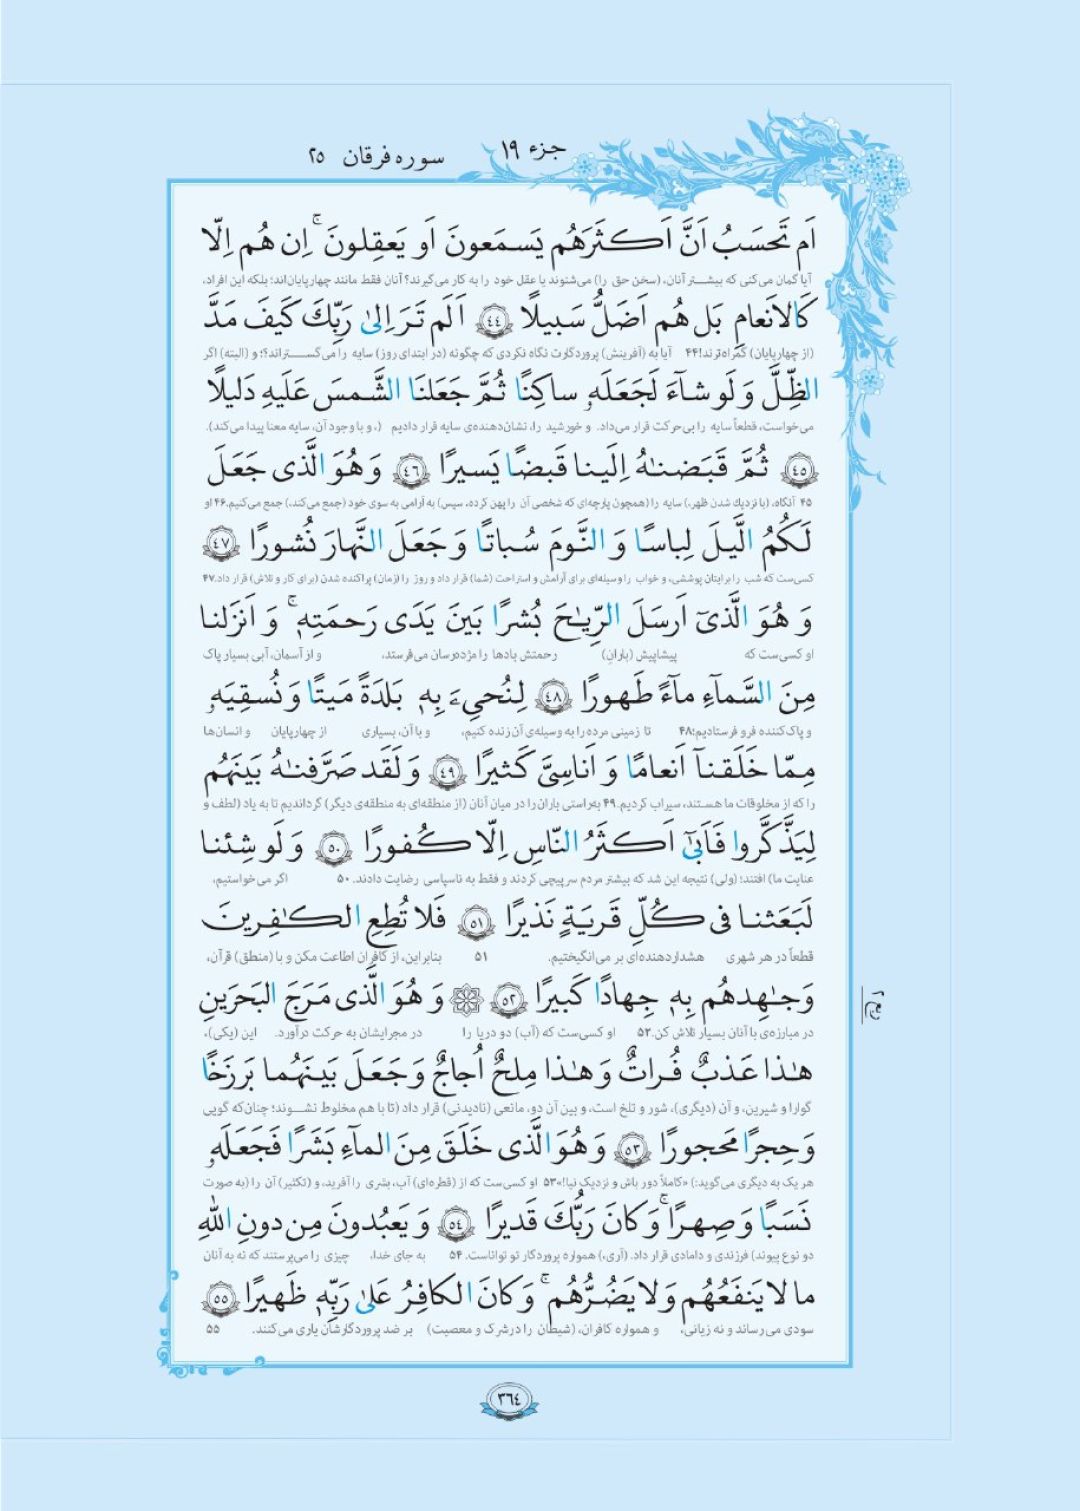 جزء ۱۹
سوره فرقان ۲۵
اَم تَحسَبُ اَنَّ اَكثَرَهُم يَسمَعونَ اَو يَعقِلونَ ۚ اِن هُم اِلّا
آیا گمان می‌کنی که بیشتر آنان، (سخن حق را) می‌شنوند یا عقل خود را به کار می‌گیرند؟ آنان فقط مانند چهارپایان‌اند؛ بلکه این افراد،
كَالاَنعامِ بَل هُم اَضَلُّ سَبيلًا ﴿٤٤﴾ اَلَم تَرَ اِلىٰ رَبِّكَ كَيفَ مَدَّ
(از چهارپایان) گمراه‌ترند!۴۴ آیا به (آفرینش) پروردگارت نگاه نکردی که چگونه (در ابتدای روز) سایه را می‌گستراند؟! و (البته) اگر
الظِّلَّ وَ لَو شآءَ لَجَعَلَهٗ ساكِنًا ثُمَّ جَعَلنَا الشَّمسَ عَلَيهِ دَليلًا
می‌خواست، قطعاً سایه را بی‌حرکت قرار می‌داد. و خورشید را، نشان‌دهنده‌ی سایه قرار دادیم (، و با وجود آن، سایه معنا پیدا می‌کند).
﴿٤٥﴾ ثُمَّ قَبَضنٰهُ اِلَينا قَبضًا يَسيرًا ﴿٤٦﴾ وَ هُوَ الَّذى جَعَلَ
۴۵ آنگاه، (با نزدیک شدن ظهر،) سایه را (همچون پارچه‌ای که شخصی آن را پهن کرده، سپس) به آرامی به سوی خود (جمع می‌کند،) جمع می‌کنیم.۴۶ او
لَكُمُ الَّيلَ لِباسًا وَ النَّومَ سُباتًا وَ جَعَلَ النَّهارَ نُشورًا ﴿٤٧﴾
کسی‌ست که شب را برایتان پوششی، و خواب را وسیله‌ای برای آرامش و استراحت (شما) قرار داد و روز را (زمان) پراکنده شدن (برای کار و تلاش) قرار داد.۴۷
وَ هُوَ الَّذىٓ اَرسَلَ الرِّيٰحَ بُشرًا بَينَ يَدَى رَحمَتِهٖ ۚ وَ اَنزَلنا
او کسی‌ست که پیشاپیش (باران) رحمتش بادها را مژده‌رسان می‌فرستد، و از آسمان، آبی بسیار پاک
مِنَ السَّمآءِ مآءً طَهورًا ﴿٤٨﴾ لِنُحىِۦَ بِهٖ بَلدَةً مَيتًا وَ نُسقِيَهٗ
و پاک‌کننده فرو فرستادیم؛۴۸ تا زمینی مرده را به وسیله‌ی آن زنده کنیم، و با آن، بسیاری از چهارپایان و انسان‌ها
مِمّا خَلَقنآ اَنعامًا وَ اَناسِىَّ كَثيرًا ﴿٤٩﴾ وَ لَقَد صَرَّفنٰهُ بَينَهُم
را که از مخلوقات ما هستند، سیراب کردیم.۴۹ به‌راستی باران را در میان آنان (از منطقه‌ای به منطقه‌ی دیگر) گرداندیم تا به یاد (لطف و
لِيَذَّكَّروا فَاَبىٰٓ اَكثَرُ النّاسِ اِلّا كُفورًا ﴿٥٠﴾ وَ لَو شِئنا
عنایت ما) افتند؛ (ولی) نتیجه این شد که بیشتر مردم سرپیچی کردند و فقط به ناسپاسی رضایت دادند. ۵۰ اگر می‌خواستیم،
لَبَعَثنا فى كُلِّ قَريَةٍ نَذيرًا ﴿٥١﴾ فَلا تُطِعِ الكٰفِرينَ
قطعاً در هر شهری هشداردهنده‌ای بر می‌انگیختیم. ۵۱ بنابراین، از کافران اطاعت مکن و با (منطق) قرآن،
وَ جٰهِدهُم بِهٖ جِهادًا كَبيرًا ﴿٥٢﴾ ۞ وَ هُوَ الَّذى مَرَجَ البَحرَينِ
در مبارزه‌ی با آنان بسیار تلاش کن.۵۲ او کسی‌ست که (آب) دو دریا را در مجرایشان به حرکت درآورد. این (یکی)،
هٰذا عَذبٌ فُراتٌ وَ هٰذا مِلحٌ اُجاجٌ وَ جَعَلَ بَينَهُما بَرزَخًا
گوارا و شیرین، و آن (دیگری)، شور و تلخ است، و بین آن دو، مانعی (نادیدنی) قرار داد (تا با هم مخلوط نشوند؛ چنان‌که گویی
وَ حِجرًا مَحجورًا ﴿٥٣﴾ وَ هُوَ الَّذى خَلَقَ مِنَ المآءِ بَشَرًا فَجَعَلَهٗ
هر یک به دیگری می‌گوید:) «کاملاً دور باش و نزدیک نیا!»۵۳ او کسی‌ست که از (قطره‌ای) آب، بشری را آفرید، و (تکثیر) آن را (به صورت
نَسَبًا وَ صِهرًا ۗ وَ كانَ رَبُّكَ قَديرًا ﴿٥٤﴾ وَ يَعبُدونَ مِن دونِ اللّٰهِ
دو نوع پیوند) فرزندی و دامادی قرار داد. (آری،) همواره پروردگار تو تواناست. ۵۴ به جای خدا، چیزی را می‌پرستند که نه به آنان
ما لا يَنفَعُهُم وَ لا يَضُرُّهُم ۗ وَ كانَ الكافِرُ عَلىٰ رَبِّهٖ ظَهيرًا ﴿٥٥﴾
سودی می‌رساند و نه زیانی، و همواره کافران، (شیطان را در شرک و معصیت) بر ضد پروردگارشان یاری می‌کنند. ۵۵
ربع ۲
٣٦٤